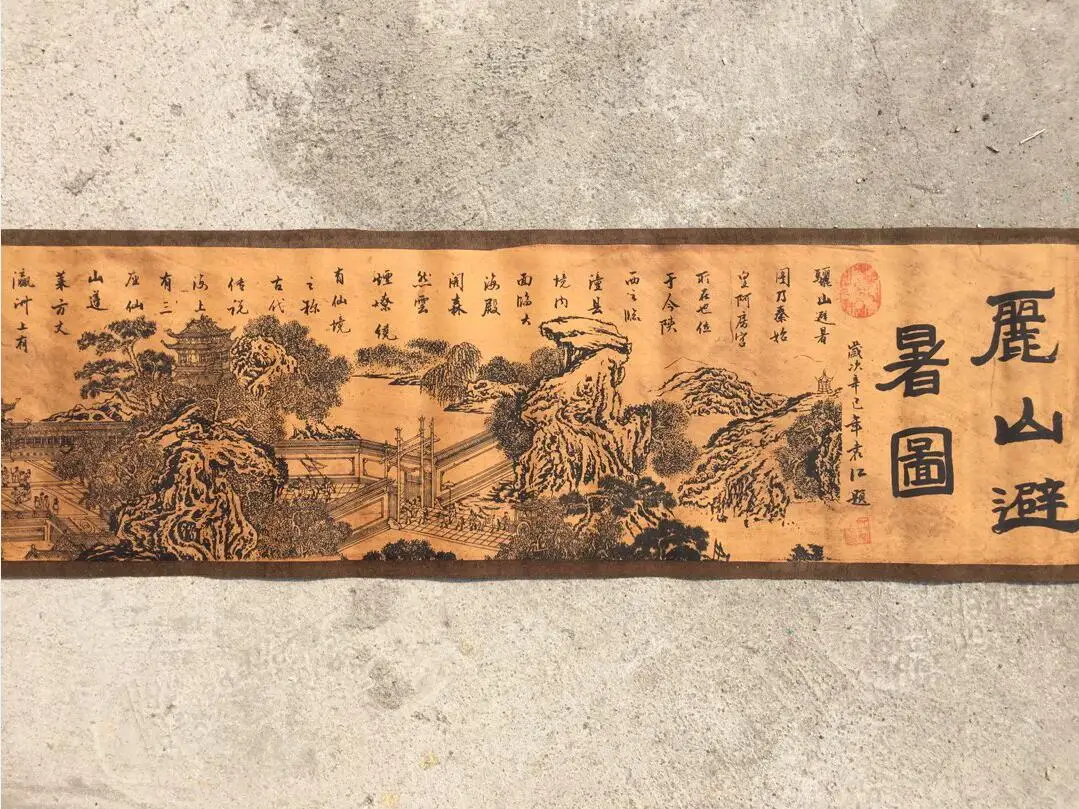 麗山避
暑圖
歲次辛巳年袁江題
驪山避暑
圖乃秦始
皇阿房宇
所在也位
于今陝
西之临
潼县
境内
面临大
海殿
阁森
然雲
煙燎繞
有仙境
之称
古代
传说
海上
有三
座仙
山蓬
莱方丈
瀛洲上有